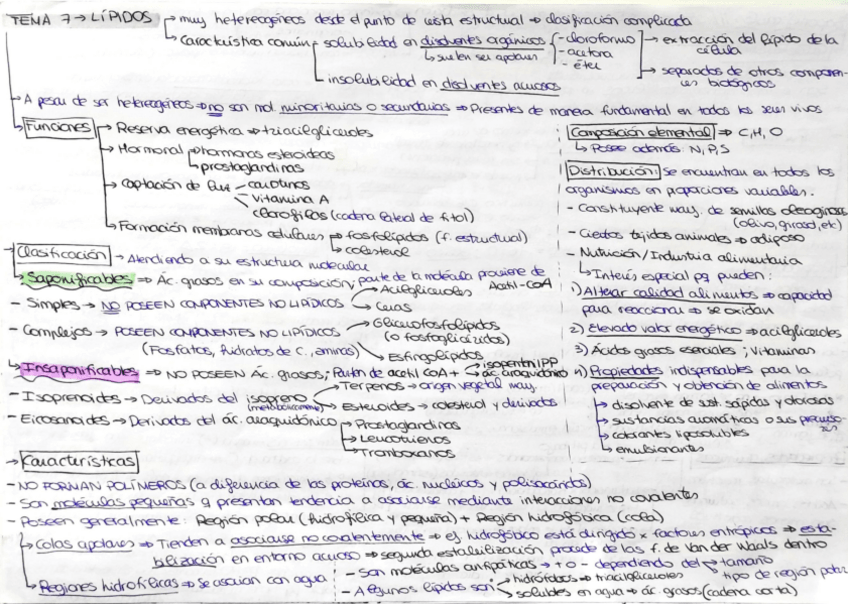 TEMA 7 → LÍPIDOS → muy heterogéneos desde el punto de vista estructural ⇒ clasificación complicada
→ Característica común → solubilidad en disolventes orgánicos → suelen ser apolares
- cloroformo
- acetona
- éter
→ extracción del lípido de la célula
→ separados de otros componentes biológicos
→ insolubilidad en disolventes acuosos
→ A pesar de ser heterogéneos ⇒ no son mol. minoritarias o secundarias ⇒ Presentes de manera fundamental en todos los seres vivos
→ Funciones
→ Reserva energética ⇒ triacilgliceroles
→ Hormonal → hormonas esteroideas
→ prostaglandinas
→ Captación de luz → carotenos
→ vitamina A
clorofilas (cadena lateral de fitol)
→ Formación membranas celulares → fosfolípidos (f. estructural)
→ colesterol
Composición elemental ⇒ C, H, O
↳ Posee además: N, P, S
Distribución: Se encuentran en todos los
organismos en proporciones variables.
- Constituyente may. de semillas oleaginosas
(olivo, girasol, etc)
- Ciertos tejidos animales ⇒ adiposo
- Nutrición/Industria alimentaria
↳ Interés especial pq pueden:
1) Alterar calidad alimentos ⇒ capacidad
para reaccionar ⇒ se oxidan
2) Elevado valor energético ⇒ acilgliceroles
3) Ácidos grasos esenciales; Vitaminas
4) Propiedades indispensables para la
preparación y obtención de alimentos
↳ disolvente de sust. sápidas y olorosas
↳ sustancias aromáticas o sus precursores
↳ colorantes liposolubles
↳ emulsionantes
→ Clasificación → Atendiendo a su estructura molecular
→ Saponificables ⇒ Ác. grasos en su composición; parte de la molécula proviene de Acetil-CoA
- Simples → NO POSEEN COMPONENTES NO LIPÍDICOS → Acilgliceroles
→ Ceras
- Complejos → POSEEN COMPONENTES NO LIPÍDICOS
(Fosfatos, hidratos de c., aminas)
→ Glicerofosfolípidos
(o fosfoglicéridos)
→ Esfingolípidos
→ Insaponificables ⇒ NO POSEEN Ác. grasos; Parten de acetil CoA + isopentenilPP
ác. araquidónico
- Isoprenoides → Derivados del isopreno → Terpenos → origen vegetal may.
→ Esteroides → colesterol y derivados
- Eicosanoides → Derivados del ác. araquidónico → Prostaglandinas
→ Leucotrienos
→ Tromboxanos
→ Características
- NO FORMAN POLÍMEROS (a diferencia de las proteínas, ác. nucleicos y polisacáridos)
- Son moléculas pequeñas q presentan tendencia a asociarse mediante interacciones no covalentes
- Poseen generalmente: Región polar (hidrofílica y pequeña) + Región hidrofóbica (cola)
→ Colas apolares ⇒ Tienden a asociarse no covalentemente ⇒ ef. hidrofóbico está dirigido x factores entrópicos ⇒ esta-
bilización en entorno acuoso ⇒ segunda estabilización procede de las f. de Van der Waals dentro
→ Regiones hidrofílicas ⇒ Se asocian con agua
- Son moléculas anfipáticas → + o - dependiendo del → tamaño
tipo de región polar
- Algunos lípidos son → hidrófobos ⇒ triacilgliceroles
→ solubles en agua ⇒ ác. grasos (cadena corta)